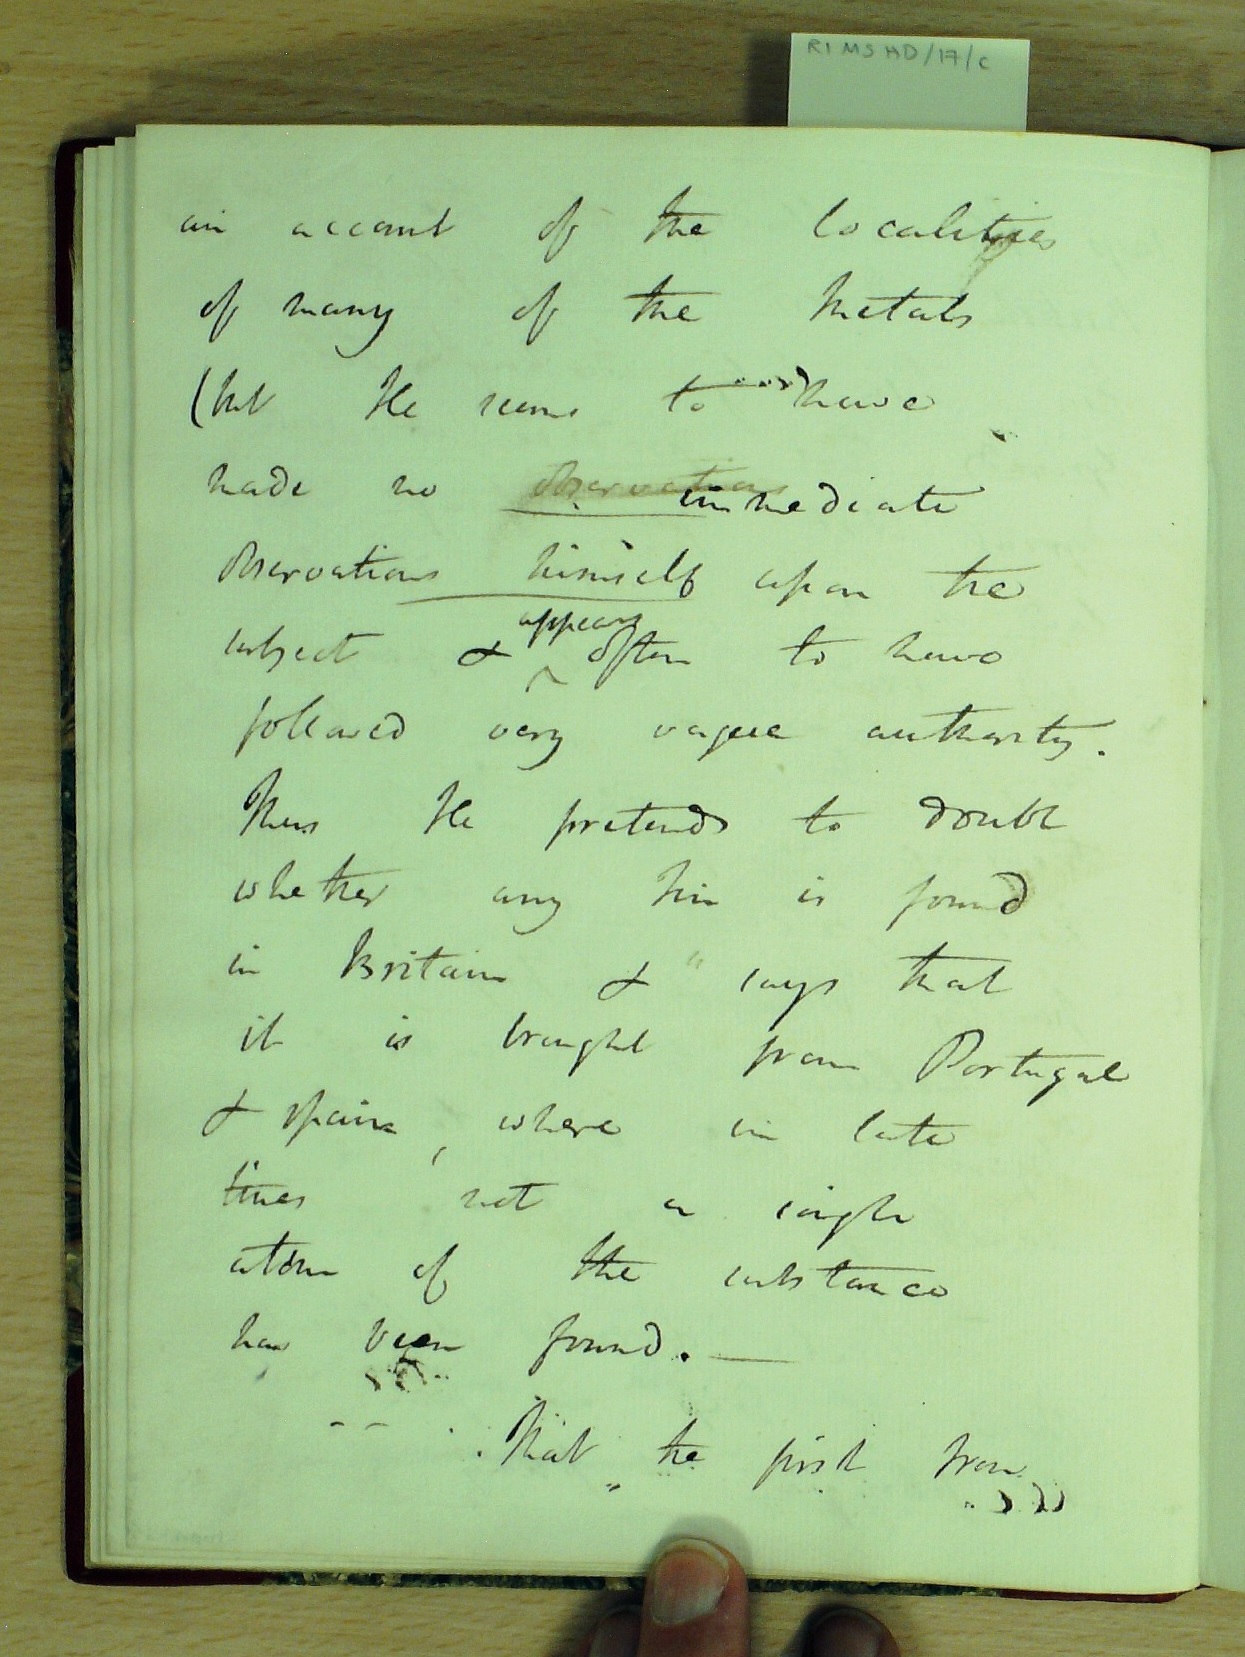 RI MS HD/17/C
an account of the localities
of many of the Metals
(but He seems to have
made no observations immediate
observations himself upon the
appears
subject & often to have
followed very vague authority.
Thus He pretends to doubt
whether any tin is found
in Britain & says that
it is brought from Portugal
& Spain, where in late
times not a single
atom of the substance
has been found. —
That the first from